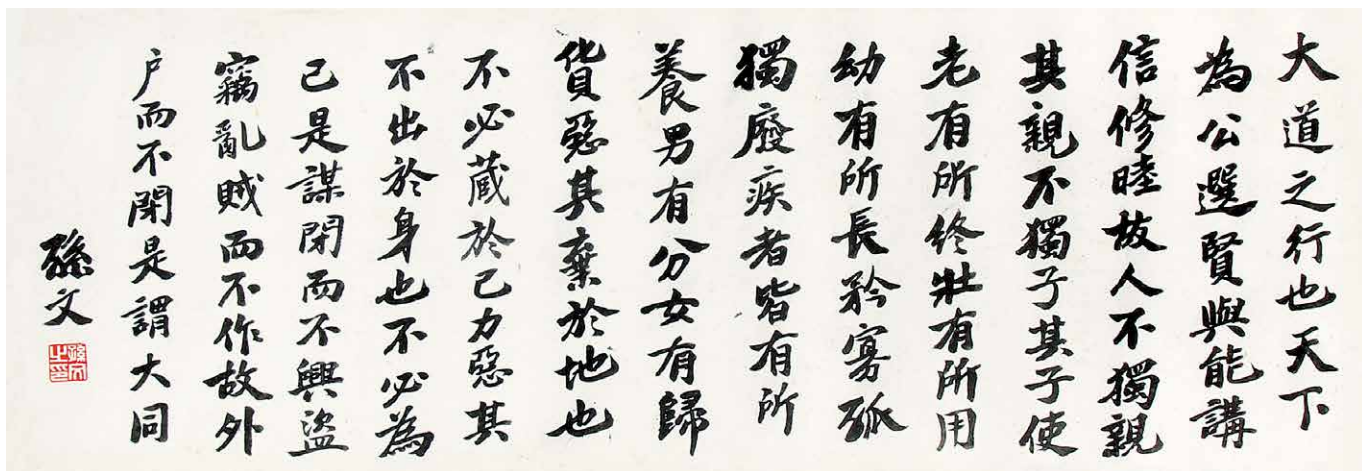 大道之行也天下
為公選賢與能講
信修睦故人不獨親
其親不獨子其子使
老有所終壯有所用
幼有所長矜寡孤
獨廢疾者皆有所
養男有分女有歸
貨惡其棄於地也
不必藏於己力惡其
不出於身也不必為
己是謀閉而不興盜
竊亂賊而不作故外
户而不閉是謂大同
孫文
孫文之印